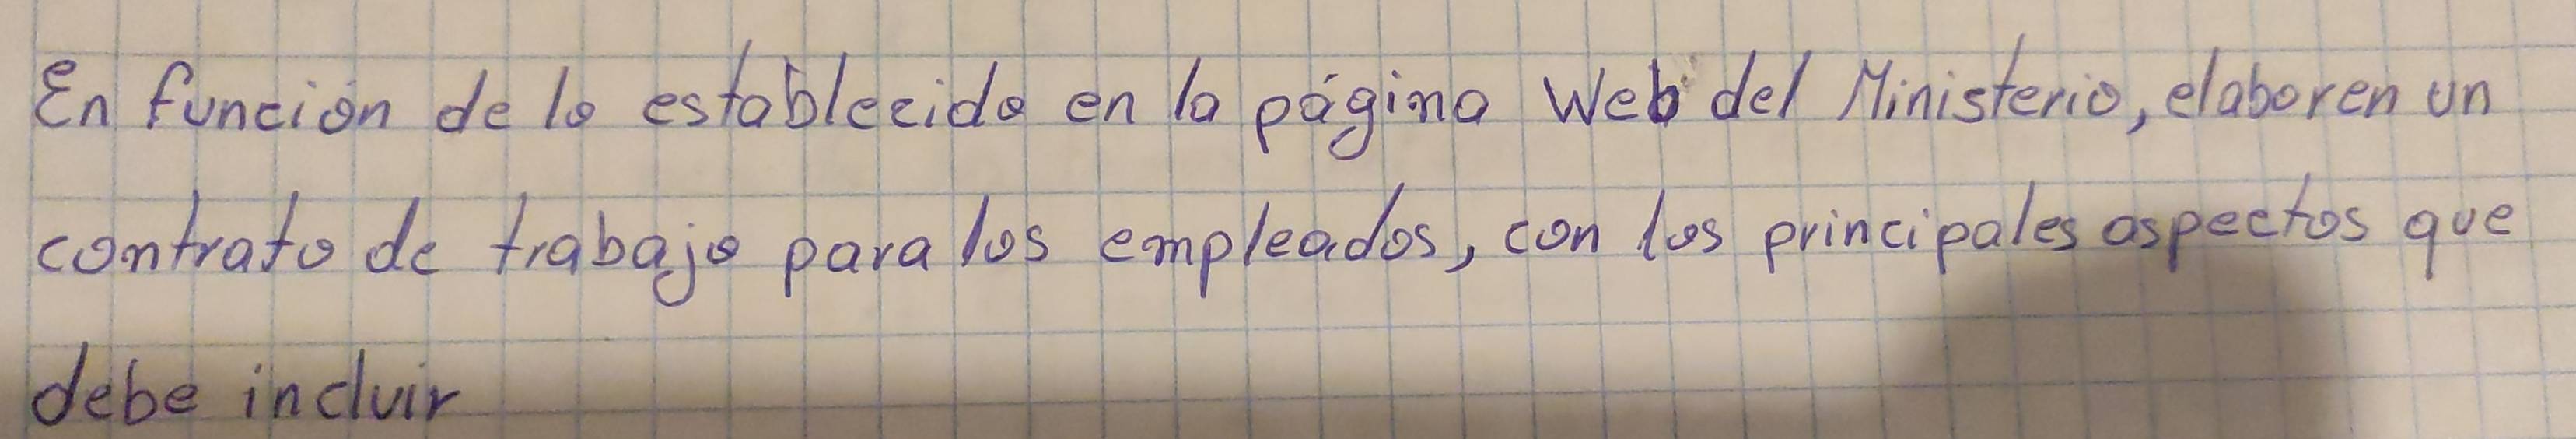 En función de lo establecido en la página Web del Ministerio, elaboren un
contrato de trabajo para los empleados, con los principales aspectos que
debe incluir